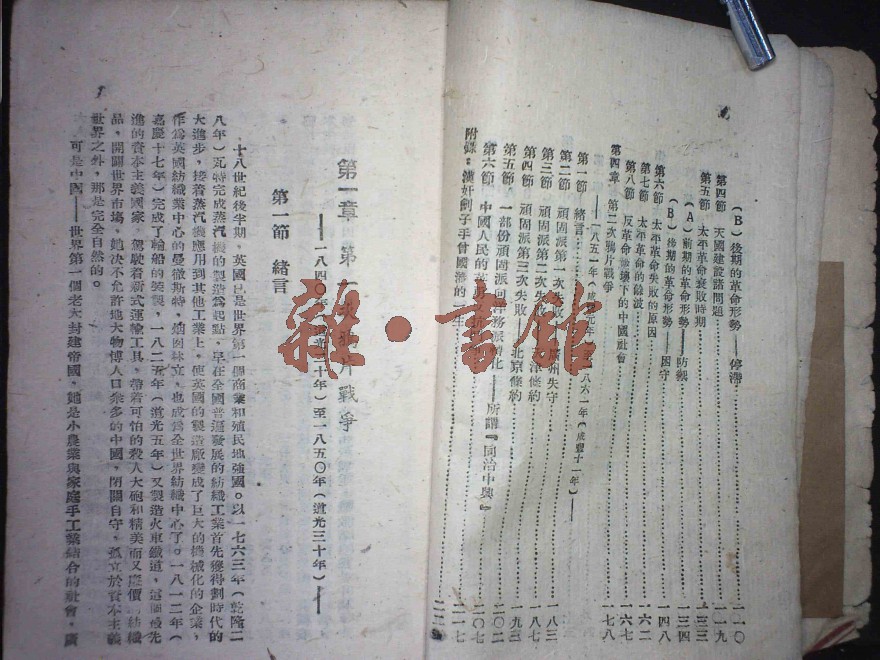 (B)後期的革命形勢——停滯……一一〇
第四節 天國建設諸問題……一一九
第五節 太平革命衰敗時期……一三三
(A)前期的革命形勢——防禦……一三四
(B)後期的革命形勢——困守……一四八
第六節 太平革命失敗的原因……一六二
第七節 太平革命的餘波……一六七
第八節 反革命統治下的中國社會……一七八
第四章 第二次鴉片戰爭
——一八五一年(咸豐元年)至一八六一年(咸豐十一年)——
第一節 緒言……一八三
第二節 頑固派第一次失敗——廣州失守……一八七
第三節 頑固派第二次失敗——天津條約……一九三
第四節 頑固派第三次失敗——北京條約……二〇二
第五節 一部份頑固派向洋務派轉化——所謂『同治中興』……二〇七
第六節 中國人民的英勇……二一七
附錄:漢奸劊子手曾國藩的一生
第一章 第一次鴉片戰爭
——一八四〇年(道光二十年)至一八五〇年(道光三十年)——
第一節 緒言
十八世紀後半期,英國已是世界第一個商業和殖民地強國。以一七六三年(乾隆二
八年)瓦特完成蒸汽機的製造爲起點,早在全國普遍發展的紡織工業首先獲得劃時代的
大進步,接着蒸汽機應用到其他工業上,使英國的製造廠變成了巨大的機械化的企業,
作爲英國紡織業中心的曼徹斯特,烟囪林立,也成爲全世界紡織中心了。一八一二年(
嘉慶十七年)完成了輪船的裝製,一八二五年(道光五年)又製造火車鐵道,這個最先
進的資本主義國家,駕駛着新式運輸工具,帶着可怕的殺人大砲和精美而又廉價紡織
品,開闢世界市場,她決不允許地大物博人口衆多的中國,閉關自守,孤立於資本主義
世界之外,那是完全自然的。
可是中國——世界第一個老大封建帝國,她是小農業與家庭手工業結合的社會,廣
雜·書館